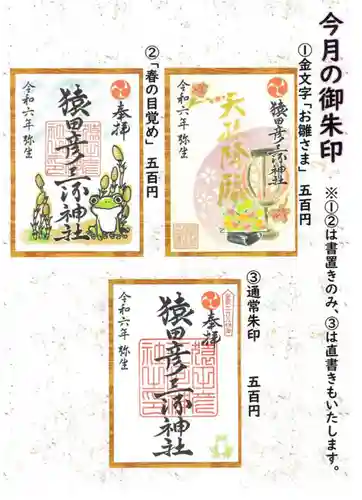 今月の御朱印
※①②は書置きのみ、③は直書きもいたします。
①金文字「お雛さま」 五百円
奉拝
猿田彦三河神社
天孫降臨
令和六年 弥生
②「春の目覚め」 五百円
奉拝
猿田彦三河神社
令和六年 弥生
③通常朱印 五百円
奉拝
猿田彦三河神社
令和六年 弥生